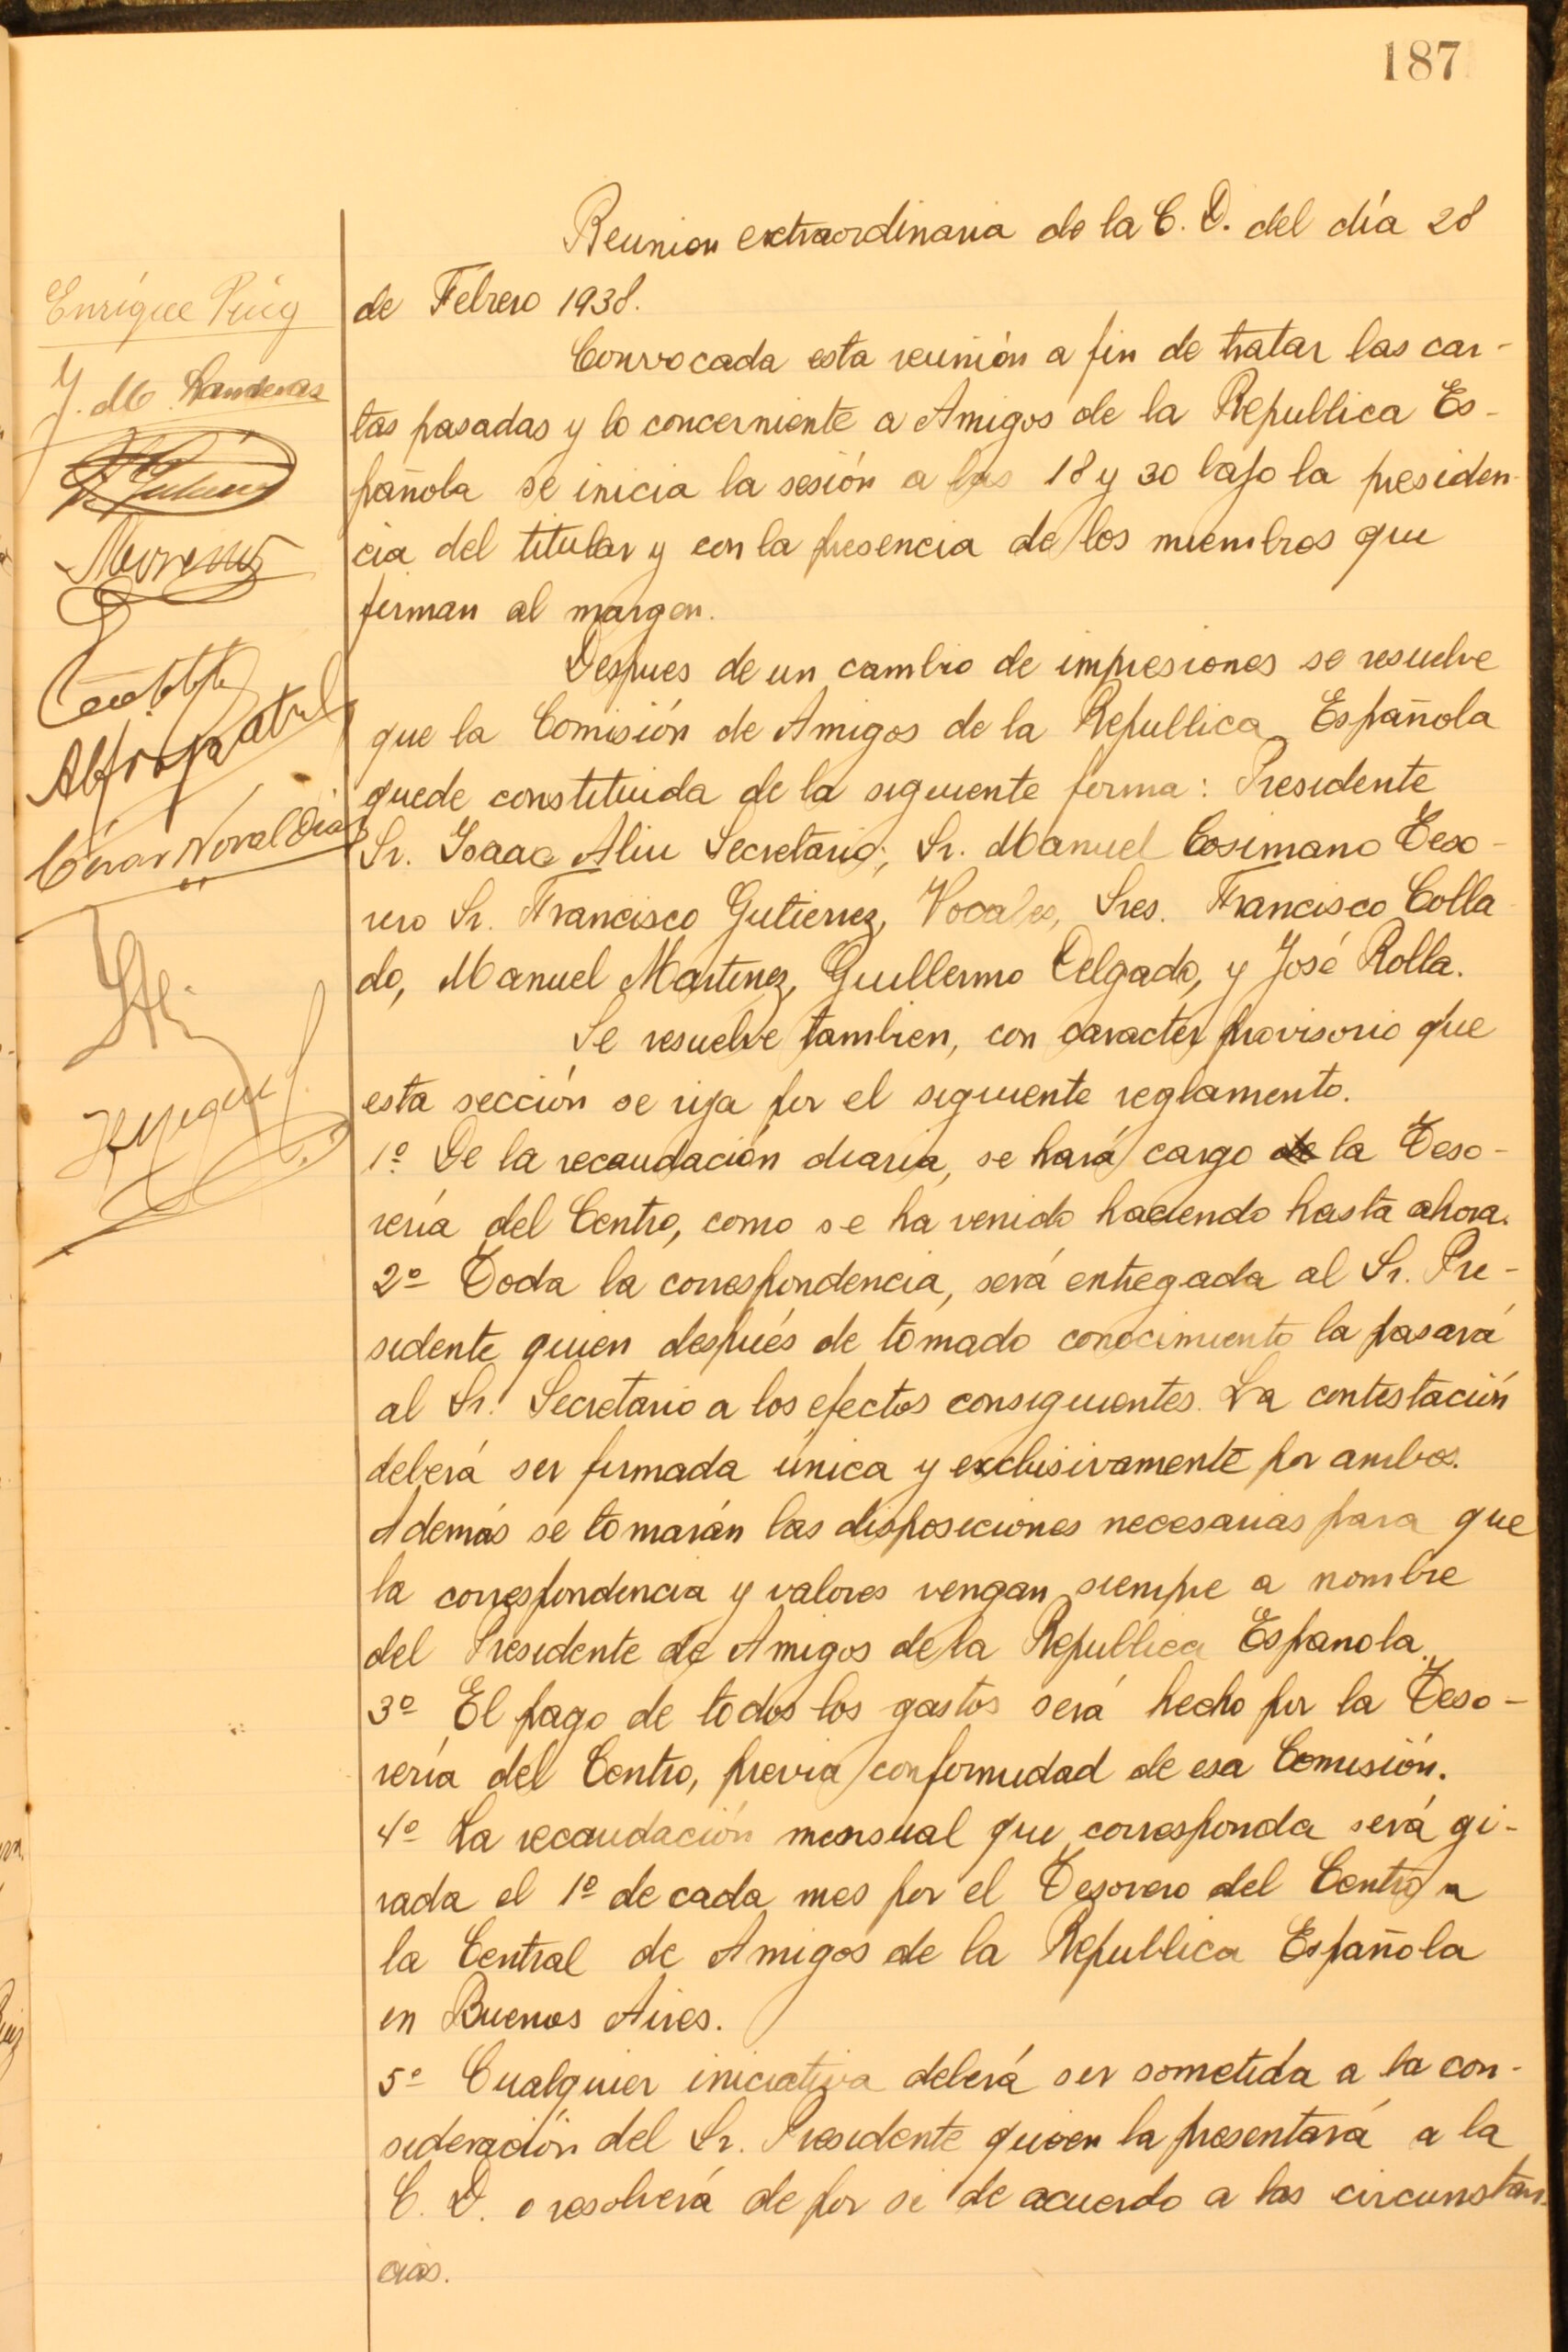 187
Reunion extraordinaria de la C. D. del día 28
de Febrero 1938.
Convocada esta reunión a fin de tratar las car-
tas pasadas y lo concerniente a Amigos de la Republica Es-
pañola se inicia la sesión a las 18 y 30 bajo la presiden-
cia del titular y con la presencia de los miembros que
firman al margen.
Despues de un cambio de impresiones se resuelve
que la Comisión de Amigos de la Republica Española
quede constituida de la siguiente forma: Presidente
Sr. Isaac Aliu Secretario; Sr. Manuel Cosimano Teso-
rero Sr. Francisco Gutierrez, Vocales, Sres. Francisco Colla-
do, Manuel Martinez, Guillermo Delgado, y José Rolla.
Se resuelve tambien, con caracter provisorio que
esta sección se rija por el siguiente reglamento.
1º De la recaudación diaria, se hará cargo la Teso-
rería del Centro, como se ha venido haciendo hasta ahora.
2º Toda la correspondencia, será entregada al Sr. Pre-
sidente quien después de tomado conocimiento la pasará
al Sr. Secretario a los efectos consiguientes. La contestación
deberá ser firmada única y exclusivamente por ambos.
Además se tomarán las disposiciones necesarias para que
la correspondencia y valores vengan siempre a nombre
del Presidente de Amigos de la Republica Espanola.
3º El pago de todos los gastos será hecho por la Teso-
rería del Centro, previa conformidad de esa Comisión.
4º La recaudación mensual que corresponda será gi-
rada el 1º de cada mes por el Tesorero del Centro a
la Central de Amigos de la Republica Española
en Buenos Aires.
5º Cualquier iniciativa deberá ser sometida a la con-
sideración del Sr. Presidente quien la presentará a la
C. D. o resolverá de por si de acuerdo a las circunstan-
cias.
Enrique Puig
J. M. Landeras
Moreno
Cesar Noval Diaz